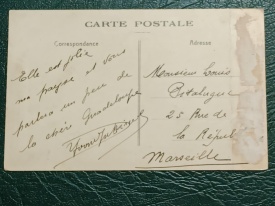 CARTE POSTALE
Correspondance
Adresse
Elle est jolie
ma payse et vous
parlera un peu de
la chère Guadeloupe
Monsieur Louis
25 Rue de
la Répu
Marseille